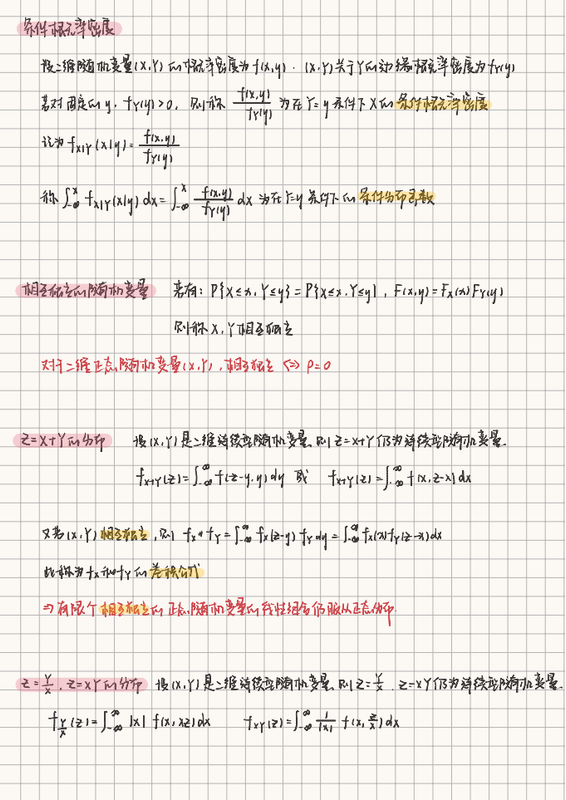 条件概率密度
设二维随机变量(X,Y)的概率密度为f(x,y).(X,Y)关于Y的边缘概率密度为fY(y)
若对固定的y, fY(y)>0, 则称 f(x,y)/fY(y) 为在Y=y条件下X的条件概率密度
记为 fX|Y(x|y)= f(x,y)/fY(y)
称 ∫_{-∞}^{x} fX|Y(x|y) dx = ∫_{-∞}^{x} f(x,y)/fY(y) dx 为在Y=y条件下的条件分布函数
相互独立的随机变量 若有: P{X≤x, Y≤y} = P{X≤x, Y≤y}, F(x,y)=FX(x)FY(y)
则称X,Y相互独立
对于二维正态随机变量(X,Y), 相互独立 <=> ρ=0
Z=X+Y的分布 设(X,Y)是二维连续型随机变量.则Z=X+Y仍为连续型随机变量.
fX+Y(z)=∫_{-∞}^{∞} f(z-y,y)dy 或 fX+Y(z)=∫_{-∞}^{∞} f(x,z-x)dx
又若(X,Y)相互独立,则 fX*fY=∫_{-∞}^{∞} fX(z-y) fY dy=∫_{-∞}^{∞} fX(x)fY(z-x)dx
此称为fX和fY的卷积公式
=> 有限个相互独立的正态随机变量的线性组合仍服从正态分布
Z=Y/X, Z=XY的分布 设(X,Y)是二维连续型随机变量.则Z=Y/X, Z=XY仍为连续型随机变量.
fY/X(z)=∫_{-∞}^{∞} |x| f(x,xz)dx fXY(z)=∫_{-∞}^{∞} 1/|x| f(x,z/x)dx